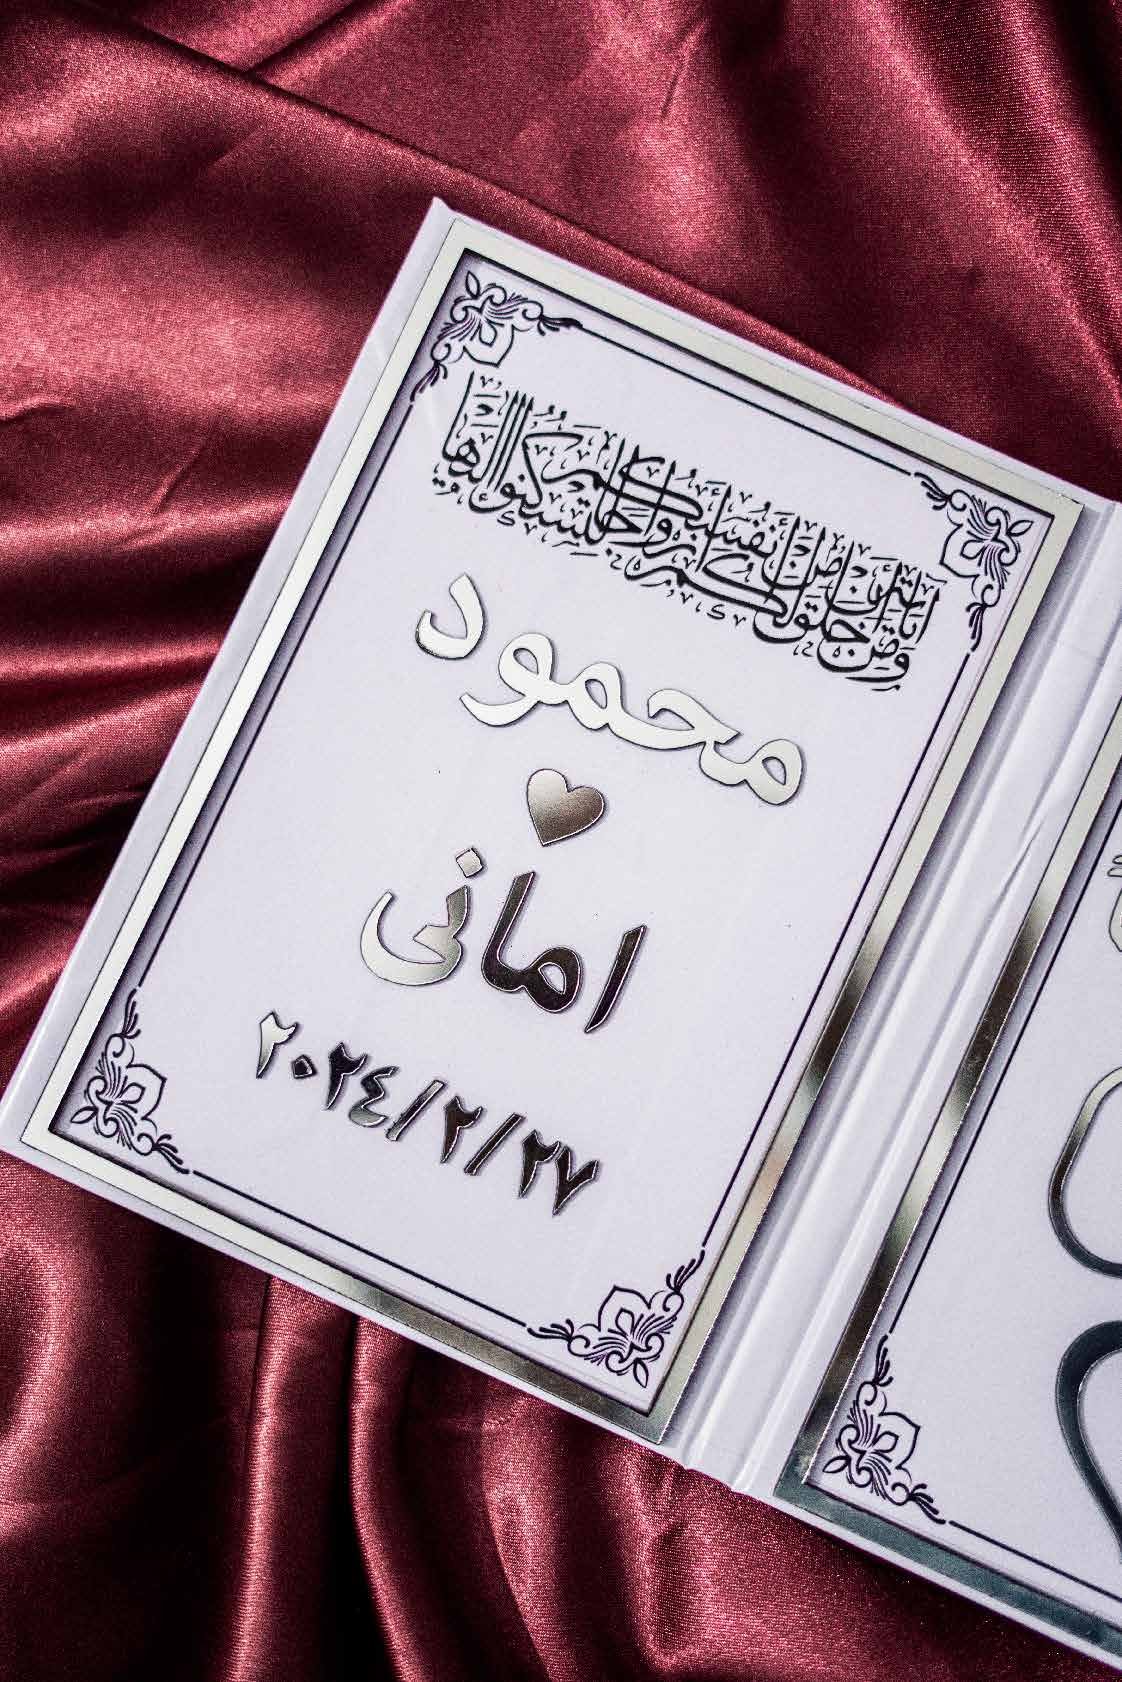 ومن آياته أن خلق لكم من أنفسكم أزواجا لتسكنوا إليها
محمود
امانى
٢٠٢٤/٢/٢٧